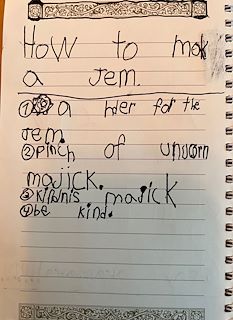 How to mak
a Jem.
① a rder for the
Jem.
② pinch of unucorn
majick.
③ kindnis majick
④ be kind.